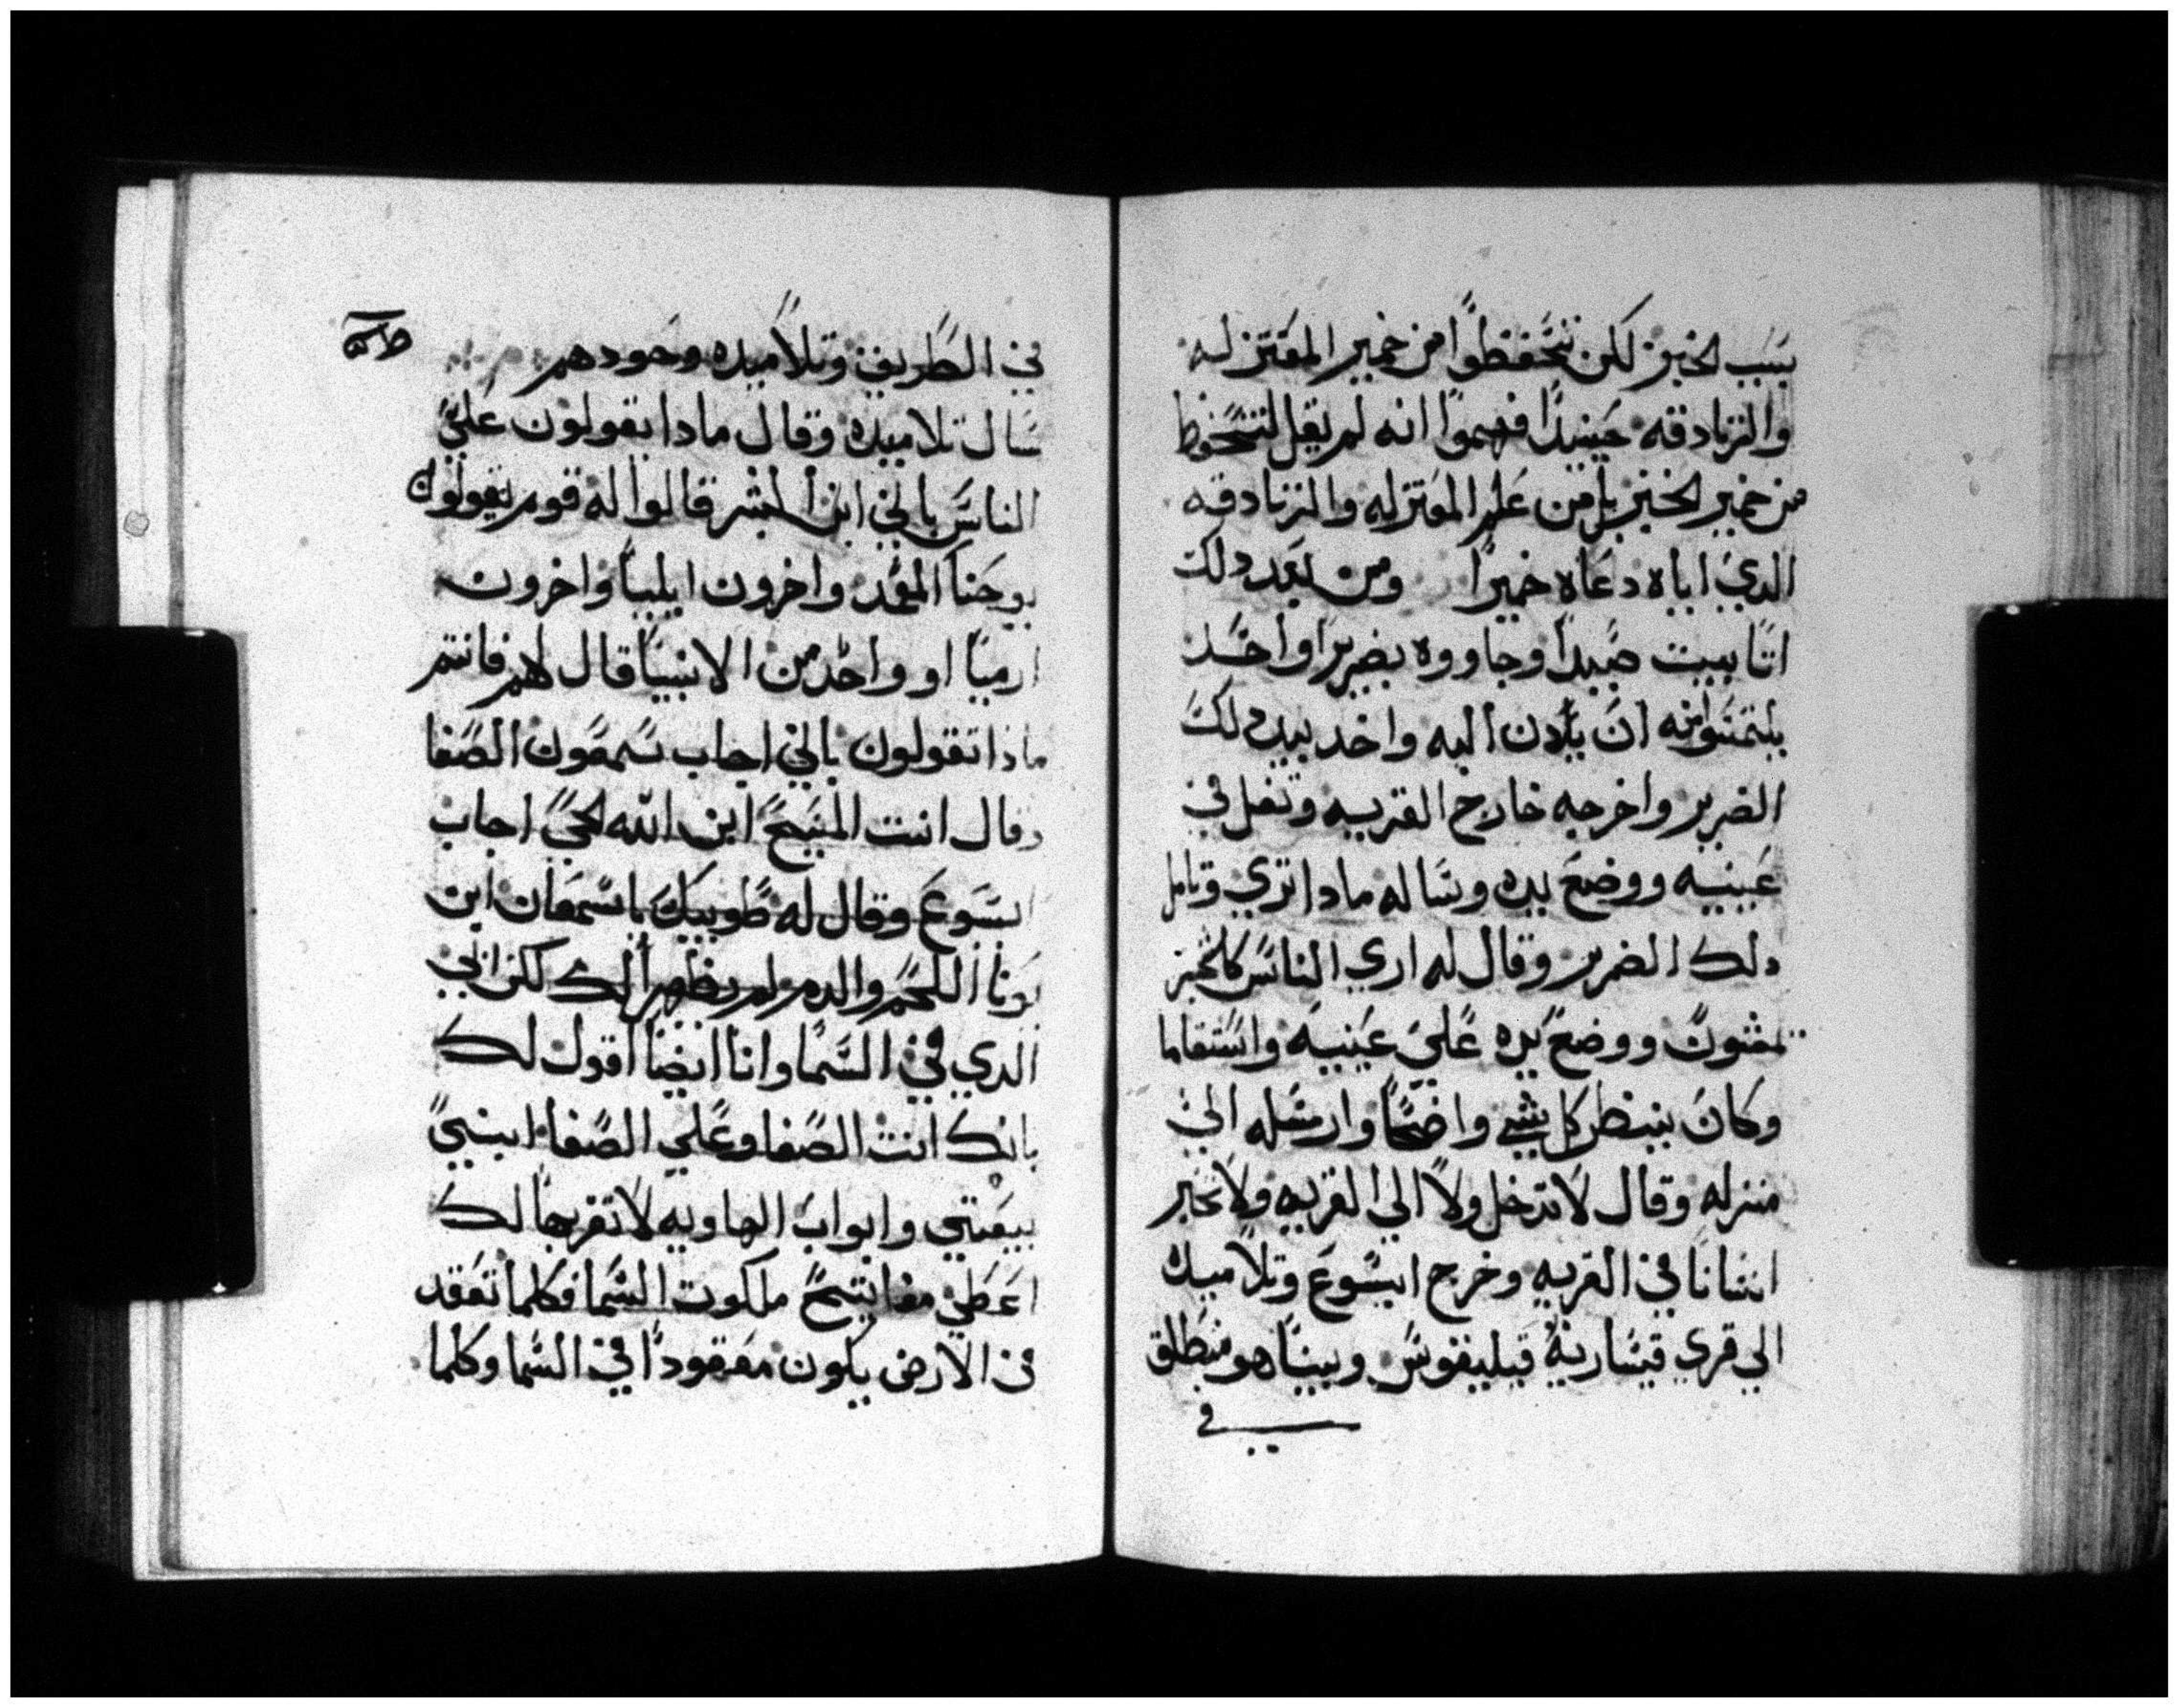 بسبب الخبز لكن تتحفظوا من خمير المعتزله
والزنادقه حينيدا فهموا انه لم يقل لتتحفظوا
من خمير الخبز بل من علم المعتزله والزنادقه
الدي اياه دعاه خميرا ومن بعد دلك
اتا بيت صيدا وجاووه بضرير واحد
يلتمسوا منه ان يادن اليه واخد بيد دلك
الضرير واخرجه خارج القريه وتفل في
عينيه ووضع يده وساله مادا تري وتامل
دلك الضرير وقال له اري الناس كالشجر
يمشون ووضع يده علي عينيه واستقاما
وكان ينظر كل شي واضحا وارسله الي
منزله وقال لا تدخل ولا الي القريه ولا تخبر
انسانا في القريه وخرج ايسوع وتلاميده
الي قري قيساريه فيليفوس وبينا هو منطلق
في
في الطريق وتلاميده وحودهم
سال تلاميده وقال مادا يقولون علي
الناس باني ابن البشر قالوا له قوم يقولون
يوحنا المعمد واخرون ايليا واخرون
ارميا او واحد من الانبيا قال لهم فانتم
مادا تقولون باني اجاب سمعون الصفا
وقال انت المسيح ابن الله الحي اجاب
ايسوع وقال له طوبيك يا سمعان ابن
يونا اللحم والدم لم يظهر لك لكن ابي
الدي في السما وانا ايضا اقول لك
بانك انت الصفا وعلي الصفا ابني
بيعتي وابواب الهاويه لا تقربها لك
اعطي مفاتيح ملكوت السما فكلما تعقد
في الارض يكون معقودا في السما وكلما